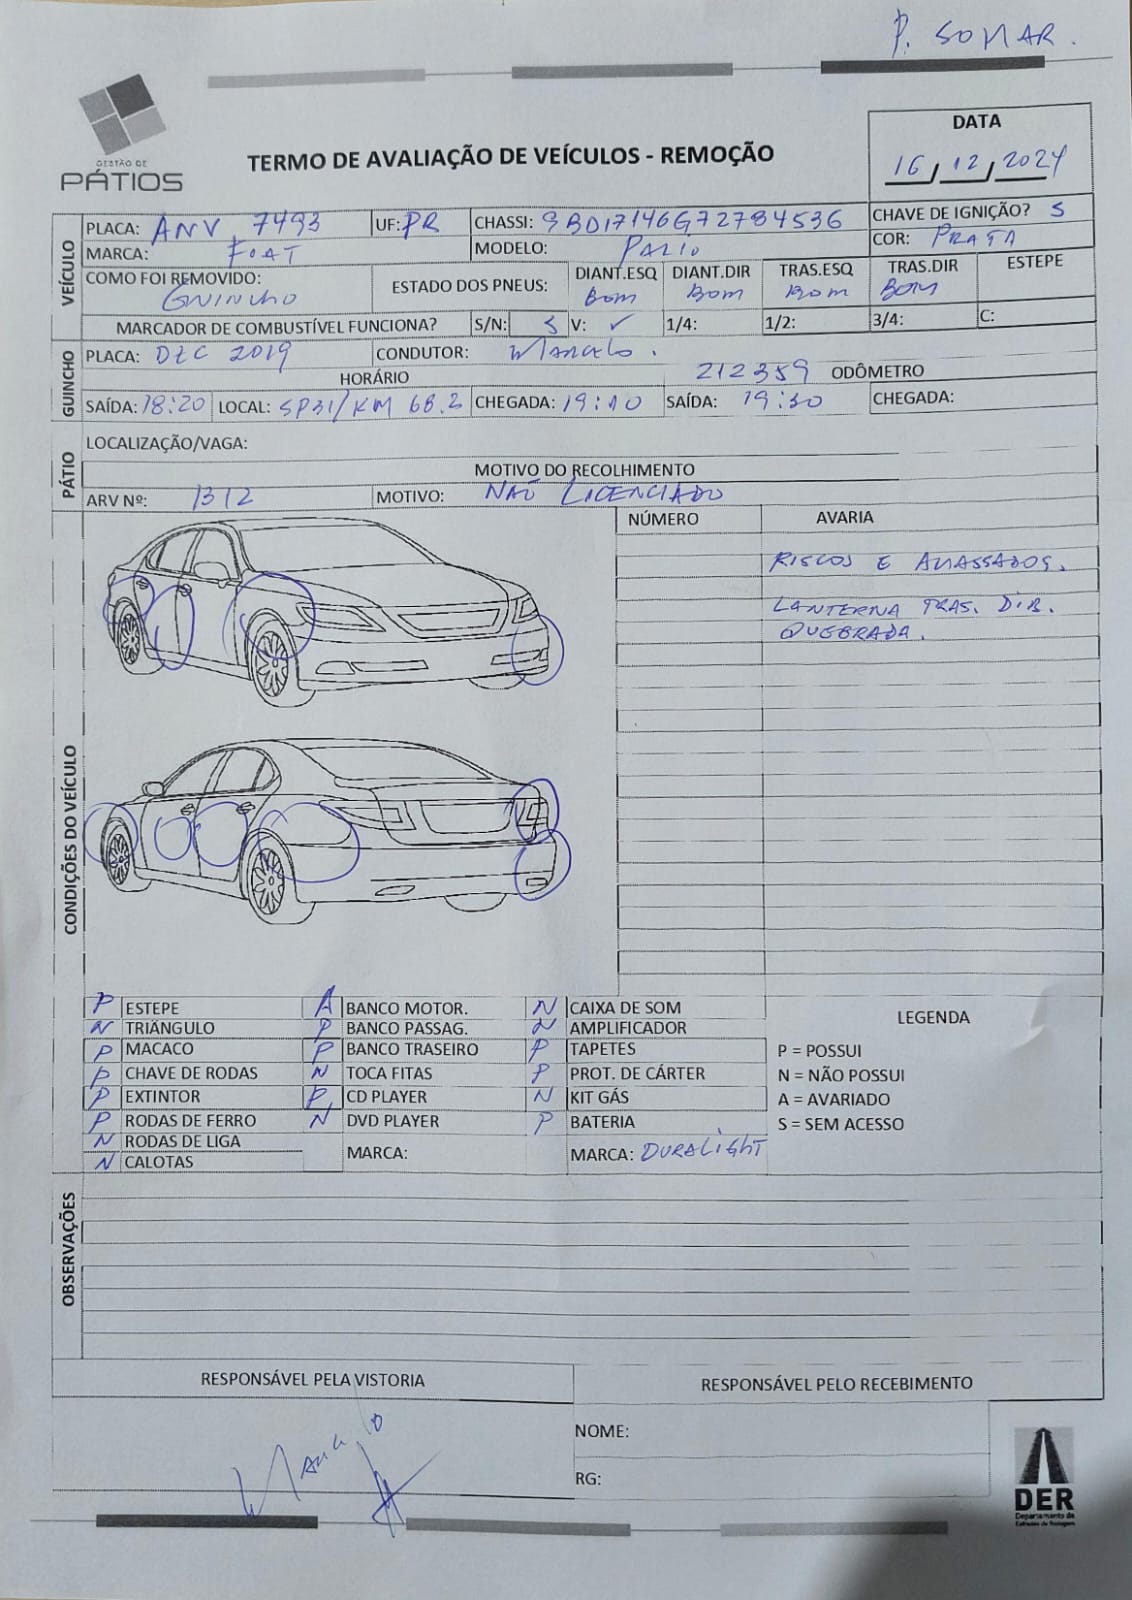 P. SOMAR.
GESTÃO DE
PÁTIOS
TERMO DE AVALIAÇÃO DE VEÍCULOS - REMOÇÃO
DATA
16/12/2024
VEÍCULO
PLACA: ANV 7493 UF: PR CHASSI: 9BD17146G72784536 CHAVE DE IGNIÇÃO? S
MARCA: FIAT MODELO: PALIO COR: PRATA
COMO FOI REMOVIDO: GUINCHO ESTADO DOS PNEUS: DIANT.ESQ BOM DIANT.DIR BOM TRAS.ESQ BOM TRAS.DIR BOM ESTEPE
MARCADOR DE COMBUSTÍVEL FUNCIONA? S/N: S V: ✓ 1/4: 1/2: 3/4: C:
GUINCHO
PLACA: DEC 2019 CONDUTOR: MARCELO.
HORÁRIO 212359 ODÔMETRO
SAÍDA: 18:20 LOCAL: SP31/KM 68.2 CHEGADA: 19:10 SAÍDA: 19:30 CHEGADA:
PÁTIO
LOCALIZAÇÃO/VAGA:
MOTIVO DO RECOLHIMENTO
ARV Nº: 1312 MOTIVO: NÃO LICENCIADO
CONDIÇÕES DO VEÍCULO
NÚMERO AVARIA
RISCOS E AMASSADOS.
LANTERNA TRAS. DIR.
QUEBRADA.
P ESTEPE A BANCO MOTOR. N CAIXA DE SOM
N TRIÂNGULO P BANCO PASSAG. N AMPLIFICADOR
P MACACO P BANCO TRASEIRO P TAPETES
P CHAVE DE RODAS N TOCA FITAS P PROT. DE CÁRTER
P EXTINTOR P CD PLAYER N KIT GÁS
P RODAS DE FERRO N DVD PLAYER P BATERIA
N RODAS DE LIGA MARCA: MARCA: DURALIGHT
N CALOTAS
LEGENDA
P = POSSUI
N = NÃO POSSUI
A = AVARIADO
S = SEM ACESSO
OBSERVAÇÕES
RESPONSÁVEL PELA VISTORIA RESPONSÁVEL PELO RECEBIMENTO
Marcelo
NOME:
RG:
DER
Departamento de
Estradas de Rodagem